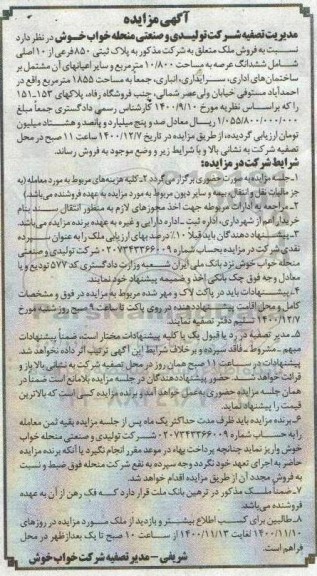 آگهی مزایده
مدیریت تصفیه شرکت تولیدی و صنعتی منحله خواب خوش در نظر دارد
نسبت به فروش ملک متعلق به شرکت مذکور به پلاک ثبتی ۸۵۰ فرعی از ۱۰ اصلی
شامل ششدانگ عرصه به مساحت ۱۰/۸۰۰ مترمربع و سایر اعیانهای آن مشتمل بر
ساختمان‌های اداری، سرایداری، انباری، جمعاً به مساحت ۱۸۵۵ مترمربع واقع در
احمدآباد مستوفی خیابان ولی‌عصر شمالی، جنب فروشگاه رفاه، پلاکهای ۱۵۳-۱۵۱
را که براساس نظریه مورخ ۱۴۰۰/۹/۱۰ کارشناس رسمی دادگستری جمعاً مبلغ
۱/۰۵۵/۸۰۰/۰۰۰/۰۰۰ ریال معادل صد و پنج میلیارد و پانصد و هشتاد میلیون
تومان ارزیابی گردیده، از طریق مزایده در تاریخ ۱۴۰۰/۱۲/۷ ساعت ۱۱ صبح در محل
تصفیه شرکت به نشانی بالا و با شرایط زیر و وضع موجود به فروش رساند.
شرایط شرکت در مزایده:
۱-جلسه مزایده به صورت حضوری برگزار می‌گردد ۲-کلیه هزینه‌های مربوط به مورد معامله (به
جز مالیات نقل و انتقال، بیمه و سایر دیون مربوط به مورد مزایده به عهده فروشنده می‌باشد)
۲-مراجعه به ادارات مربوطه جهت اخذ مجوزهای لازم به منظور انتقال سند بنام
خریدار اعم از شهرداری، اداره ثبت، اداره دارایی و غیره به عهده برنده مزایده می‌باشد.
۳-پیشنهاددهندگان باید قبلاً ۱۰٪ درصد بهای ارزیابی ملک را به عنوان سپرده
نقدی شرکت در مزایده بحساب شماره ۰۲۰۷۳۴۳۳۶۶۰۰۹ شرکت تولیدی و صنعتی
منحله خواب خوش نزد بانک ملی ایران شعبه وزارت دادگستری کد ۵۷۷ تودیع و یا
معادل وجه فوق چک بانکی اخذ و ضمیمه پیشنهاد خود نمایند.
۴-پیشنهادات باید در پاکت لاک و مهر شده مربوط به مزایده در فوق و مشخصات
کامل و محل اقامت پیشنهاددهنده در روی پاکت تا ساعت ۹ صبح روز شنبه مورخ
۱۴۰۰/۱۲/۷ تسلیم دفتر تصفیه نمایند.
۵-مدیر تصفیه در رد یا قبول یک یا کلیه پیشنهادات مختار است، ضمناً پیشنهادات
مبهم - مشروط - فاقد سپرده و برخلاف شرایط این آگهی ترتیب اثر داده نخواهد شد.
پیشنهادات در ساعت ۱۱ صبح همان روز در محل تصفیه شرکت به نشانی بالا باز و
قرائت خواهد شد. حضور پیشنهاددهندگان در جلسه مزایده بلامانع است ضمناً در
همان جلسه مزایده حضوری به‌عمل خواهد آمد و برنده مزایده کسی است که بالاترین
قیمت را پیشنهاد نماید.
۶-برنده مزایده باید ظرف مدت حداکثر یک ماه پس از جلسه مزایده بقیه ثمن معامله
را به حساب شماره ۰۲۰۷۳۴۳۳۶۶۰۰۹ شرکت تولیدی و صنعتی منحله خواب
خوش واریز نماید چنانچه پرداخت بهاء در موعد مقرر انجام نگیرد یا آنکه برنده مزایده
حاضر به اجرای تعهد خود نگردد وجه سپرده به نفع شرکت منحله فوق ضبط و نسبت
به فروش مجدد آن از طریق مزایده اقدام خواهد شد.
۷-ضمناً ملک مذکور در ترهین بانک ملت قرار دارد که فک رهن از آن به عهده
فروشنده می‌باشد.
۸-طالبین برای کسب اطلاع بیشتر و بازدید از ملک مورد مزایده در روزهای
۱۴۰۰/۱۱/۱۰ لغایت ۱۴۰۰/۱۱/۱۳ از ساعت ۱۰ صبح تا یک بعدازظهر در محل
فراهم است.
شریفی - مدیر تصفیه شرکت خواب خوش